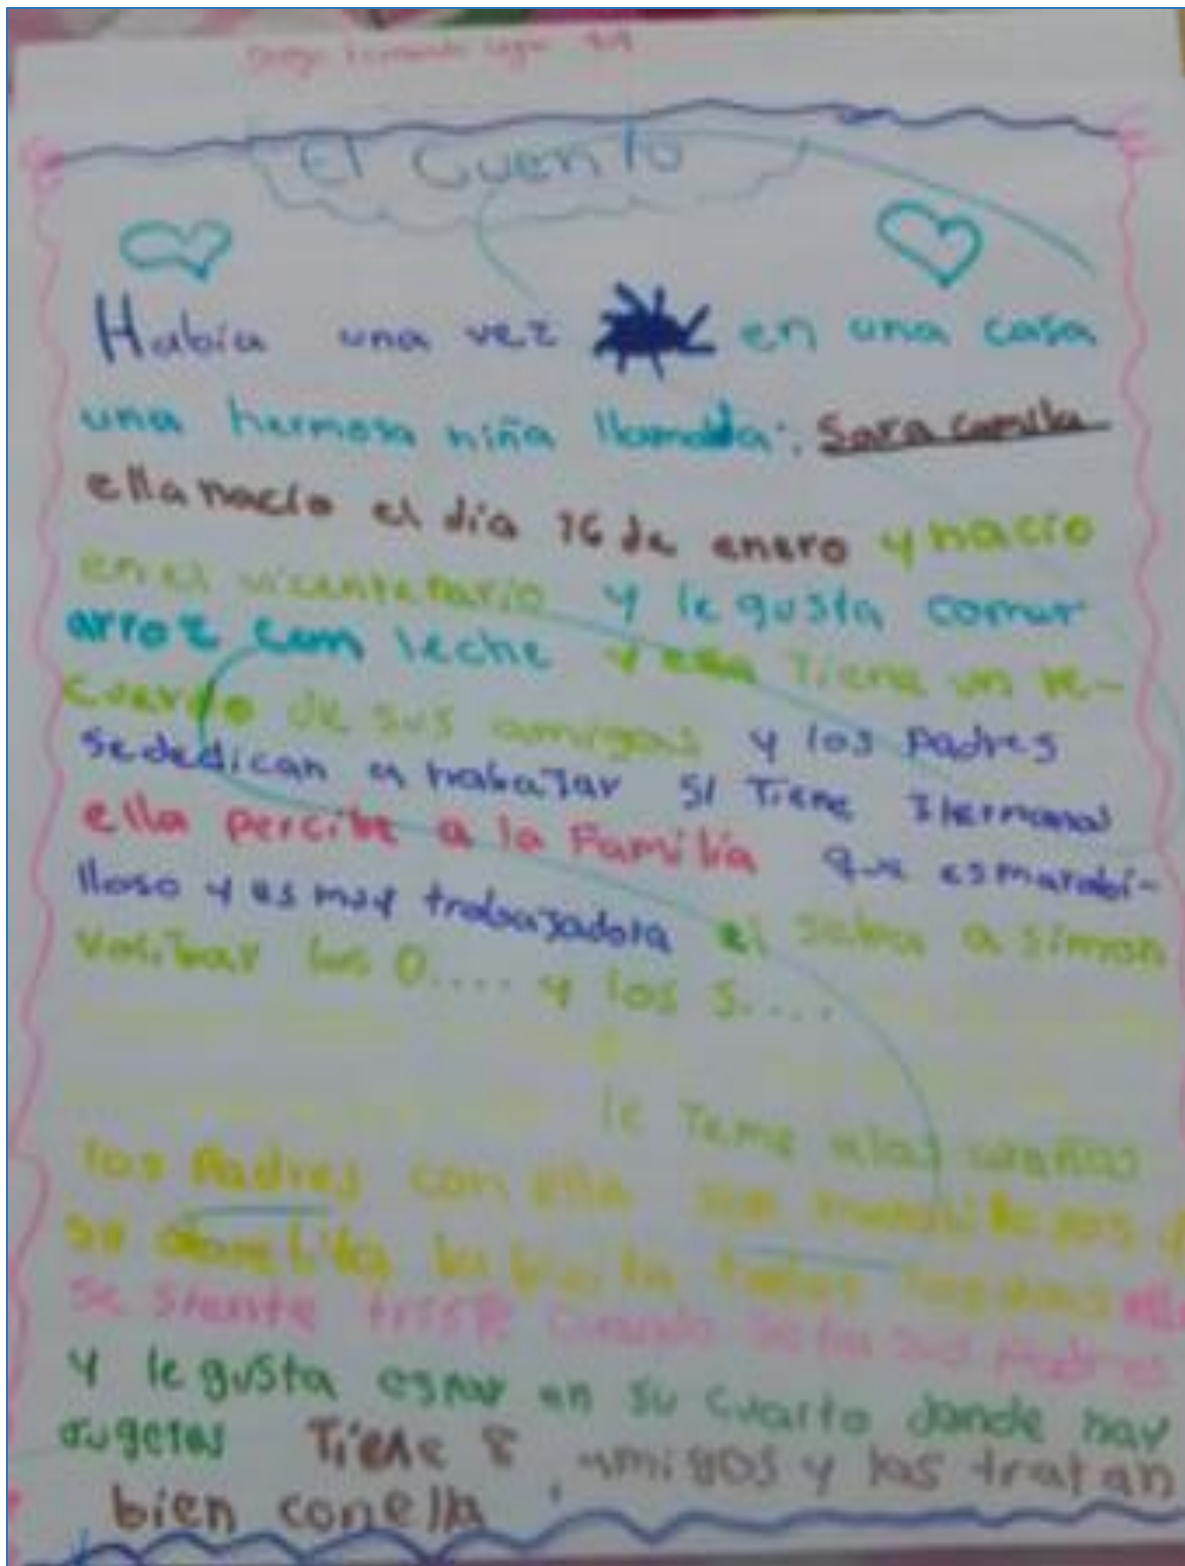 El Cuento
Había una vez en una casa
una hermosa niña llamada: Sara camila
ella nacio el día 16 de enero y nacio
en el vicentenario y le gusta comer
arroz con leche y ella Tiene un re-
cuerdo de sus amigas y los Padres
se dedican a trabaJar SI Tiene Hermanas
ella percibe a la Familia que es marabi-
lloso y es muy trabaJadora el a simon
los 0.... y los 5....
le Teme a las arañas
los Padres con ella
se la todos los dias
se siente triste cuando sus Padres
y le gusta estar en su cuarto donde hay
Jugetes Tiene 8 amigos y las tratan
bien con ella